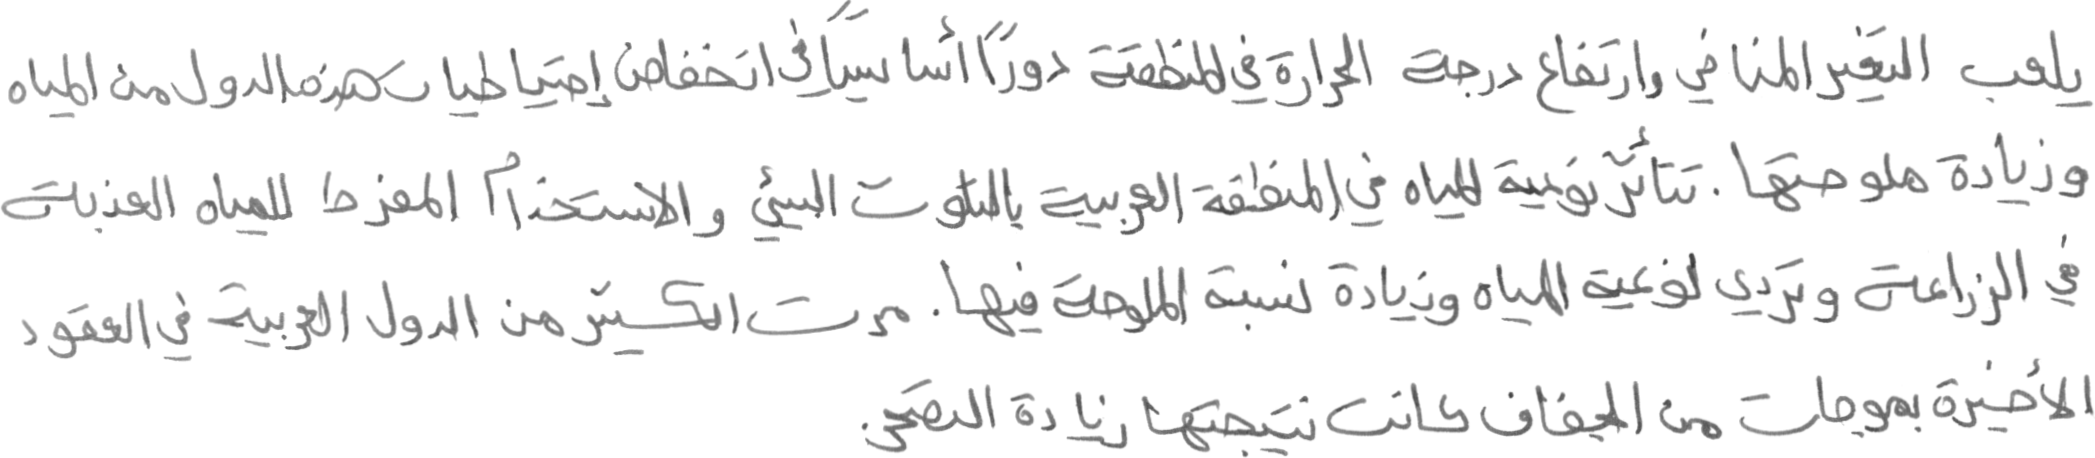 يلعب التغير المناخي وارتفاع درجة الحرارة في المنطقة دورًا أساسيًا في انخفاض إحتياطيات هذه الدول من المياه
وزيادة ملوحتها. تتأثر نوعية المياه في المنطقة العربية بالتلوث البيئي والاستخدام المفرط للمياه العذبة
في الزراعة وتردي نوعية المياه وزيادة نسبة الملوحة فيها. مرت الكثير من الدول العربية في العقود
الأخيرة بموجات من الجفاف كانت نتيجتها زيادة التصحر.